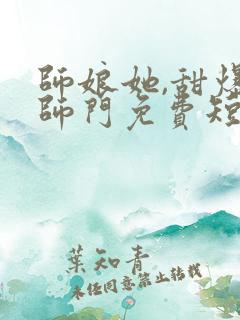 師娘她,甜爆
師門免費短
葉知青
未經同意禁止轉載